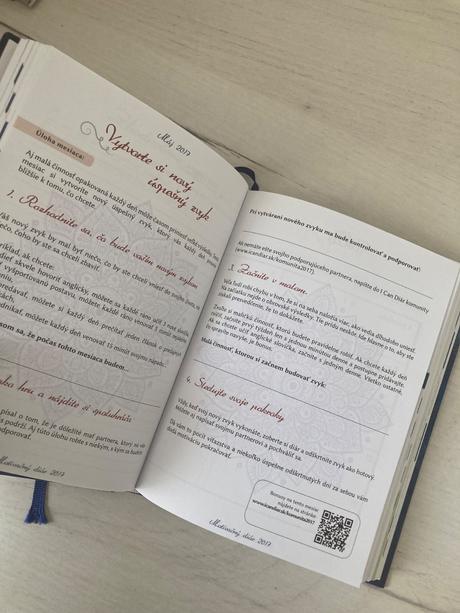 Máj 2017
Úloha mesiaca:
Vytvorte si nový
úspešný zvyk
Aj malá činnosť opakovaná každý deň môže časom priniesť veľké výsledky. Tento
mesiac si vytvoríte nový úspešný zvyk, ktorý vás každý deň
bližšie k tomu, čo chcete.
1. Rozhodnite sa, čo bude vaším novým zvykom
Váš nový zvyk by mal byť niečo, čo by ste chceli vniesť do svojho života,
niečo, čoho by ste sa chceli zbaviť.
Príklad, ak chcete:
skvele hovoriť anglicky, môžete sa každé ráno učiť
vyšportovanú postavu, môžete každé ráno venovať
predávať, môžete si každý deň prečítať jeden článok o predaji
môžete každý deň venovať 15 minút svojmu nápadu.
som sa, že počas tohto mesiaca budem...
hru a nájdite si spoluhráča
písal o tom, že je dôležité mať partnera, ktorý sa vás
podrží. Aj túto úlohu robte s niekým, s kým sa budete
podporovať.
Motivačný diár 2017
Pri vytváraní nového zvyku ma bude kontrolovať a podporovať:
Ak nemáte ešte svojho podporujúceho partnera, napíšte do I Can Diár komunity
(www.icandiar.sk/komunita2017).
3. Začnite v malom.
Veľa ľudí robí chybu v tom, že si na seba naložia viac, ako vedia dlhodobo uniesť.
Na začiatku nejde o obrovské výsledky. Tie prídu neskôr. Ide hlavne o to, aby ste
získali presvedčenie, že to dokážete.
Zvoľte si maličkú činnosť, ktorú budete pravidelne robiť. Ak chcete každý deň
cvičiť, začnite prvý týždeň len s jednou minútou denne a postupne pridávajte.
Ak sa chcete učiť anglické slovíčka, začnite s jedným denne. Všetko ostatné,
čo spravíte navyše, je bonus.
Malá činnosť, ktorou si začnem budovať zvyk:
4. Sledujte svoje pokroky
Vždy, keď svoj nový zvyk vykonáte, zoberte si diár a odškrtnite zvyk ako hotový.
Môžete aj napísať svojmu partnerovi a pochváliť sa.
Dá vám to pocit víťazstva a niekoľko úspešne odškrtnutých dní za sebou vám
dodá motiváciu pokračovať.
Bonusy na tento mesiac
nájdete na stránke:
www.icandiar.sk/komunita2017
Motivačný diár 2017